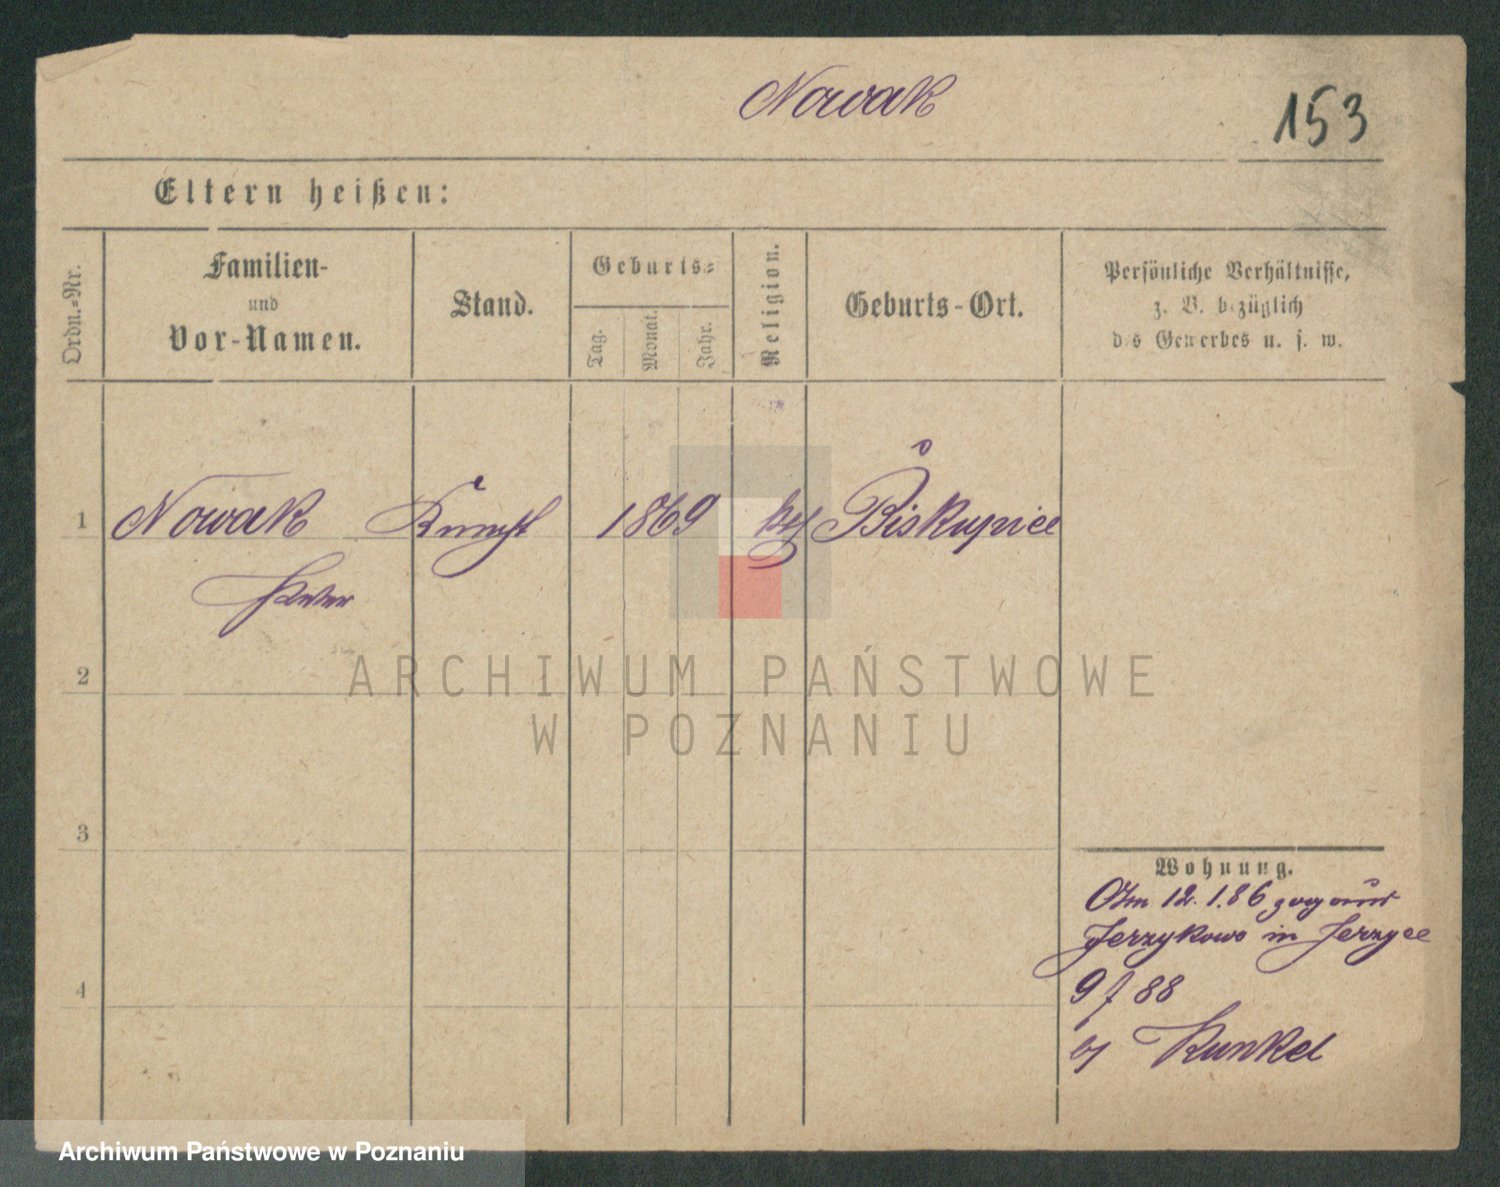 Nowak
153
Eltern heißen:
Ordn.-Nr.
Familien-
und
Vor-Namen.
Stand.
Geburts-
Tag.
Monat.
Jahr.
Religion.
Geburts-Ort.
Persönliche Verhältnisse,
z. B. bezüglich
des Gewerbes u. s. w.
1 Nowak 1869 Biskupice
2
3
4
Wohnung.
12. 1. 86 zog aus
Jerzykowo in Jerzyce
9 / 88
Kunkel
ARCHIWUM PAŃSTWOWE
W POZNANIU
Archiwum Państwowe w Poznaniu